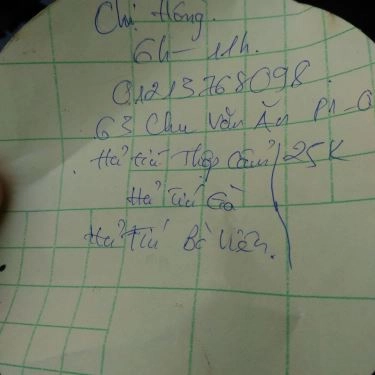 Chị Hồng.
6h - 11h.
01213768098.
63 Chu Văn An P1-Q
Hủ tiếu Thập Cẩm 25K
Hủ Tiếu Gà
Hủ Tiếu Bò Viên.